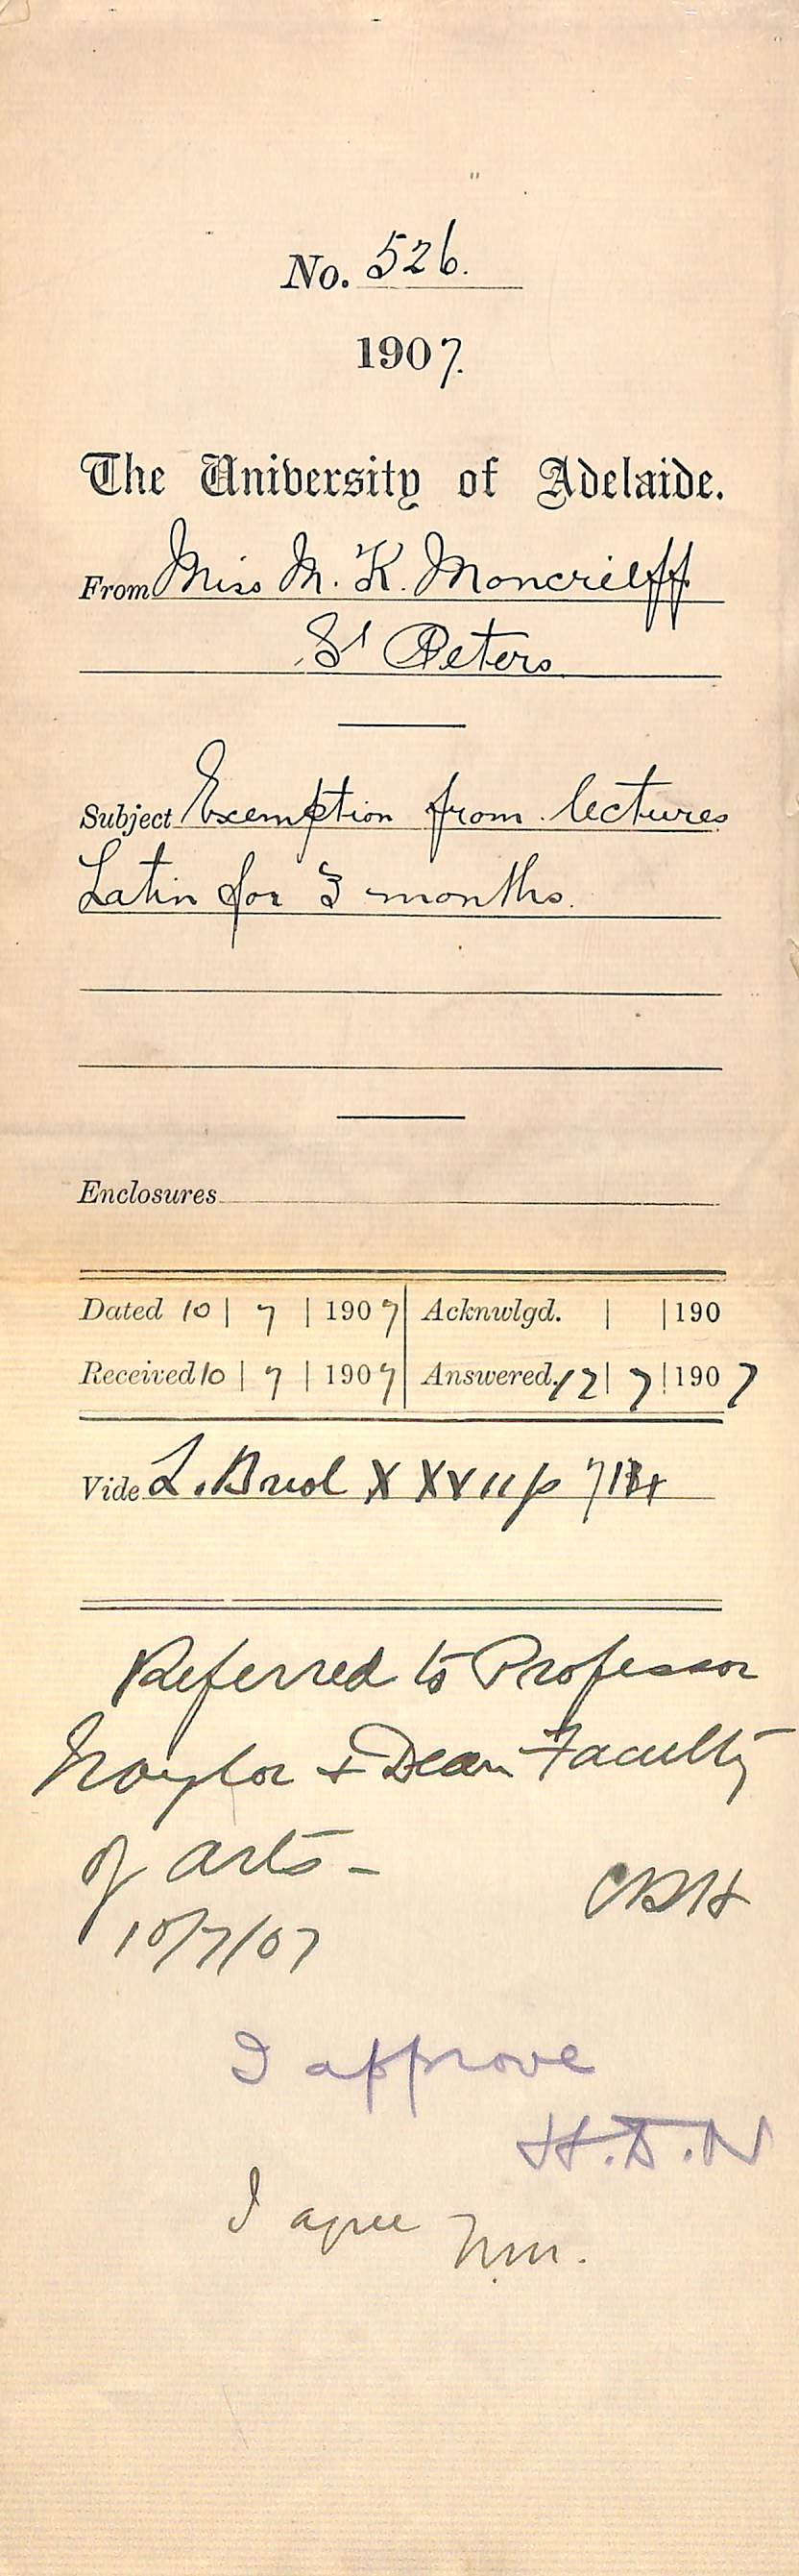 No. 526.
1907.
The University of Adelaide.
From Miss M. K. Moncrieff
St Peters
Subject Exemption from lectures
Latin for 3 months.
Enclosures
Dated 10 | 7 | 1907 Acknwlgd. | | 190
Received 10 | 7 | 1907 Answered. 12 | 7 | 1907
Vide L. Book XXVII p
Referred to Professor
Naylor & Dean Faculty
of Arts –
10/7/07
I approve
H.D.N
I agree